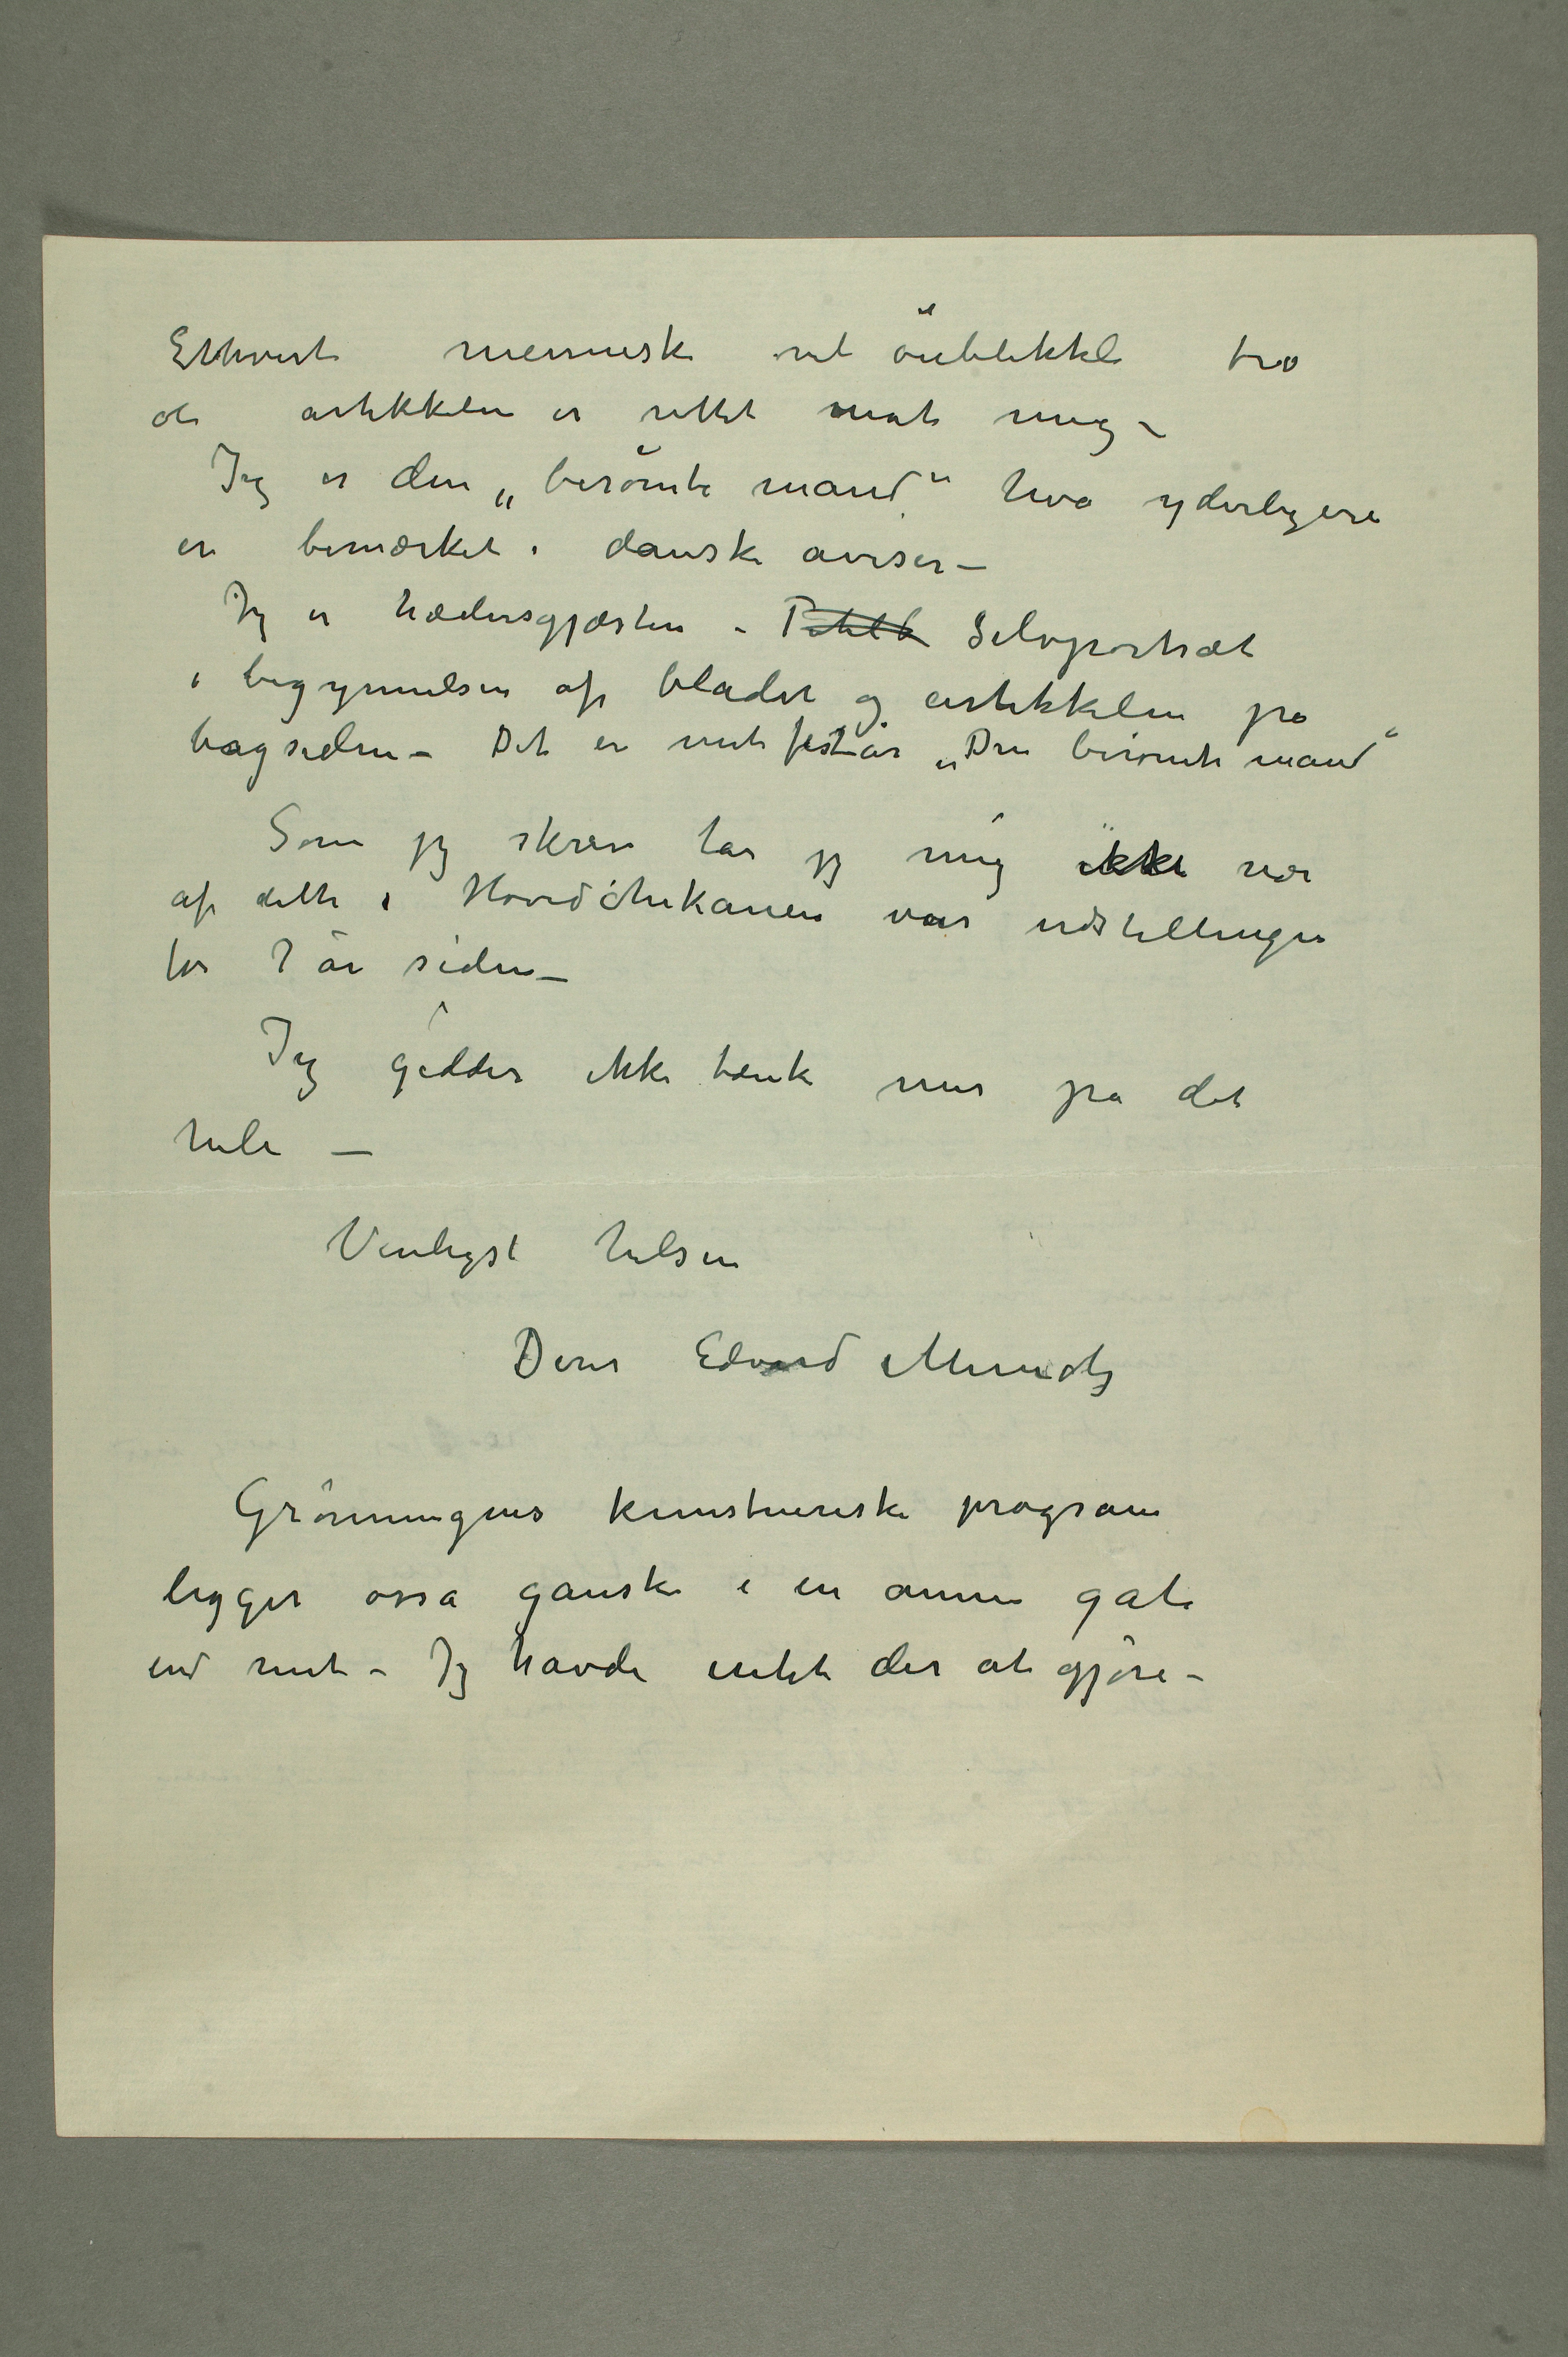 Ethvert menneske vil öieblikkli tro
at artikkelen er rettet mot mig –
Jeg er den „berömte mand“ hva yderligere
er bemærket i danske aviser –
Jeg er hædersgjæsten – Selvportræt
i begynnelsen af bladet og artikkelen på
bagsiden – Det er mit festår „Den berömte mand“
Som jeg skrev tar jeg mig ikke nær
af dette i Hovedchikanen var udstillingen
for 7 år siden –
Jeg gidder ikke tænke mer på det
hele –
Venligst hilsen
Deres Edvard Munch
Grönningens kunstneriske program
ligger osså ganske i en annen gate
end mit – Jeg havde intet der at gjöre –